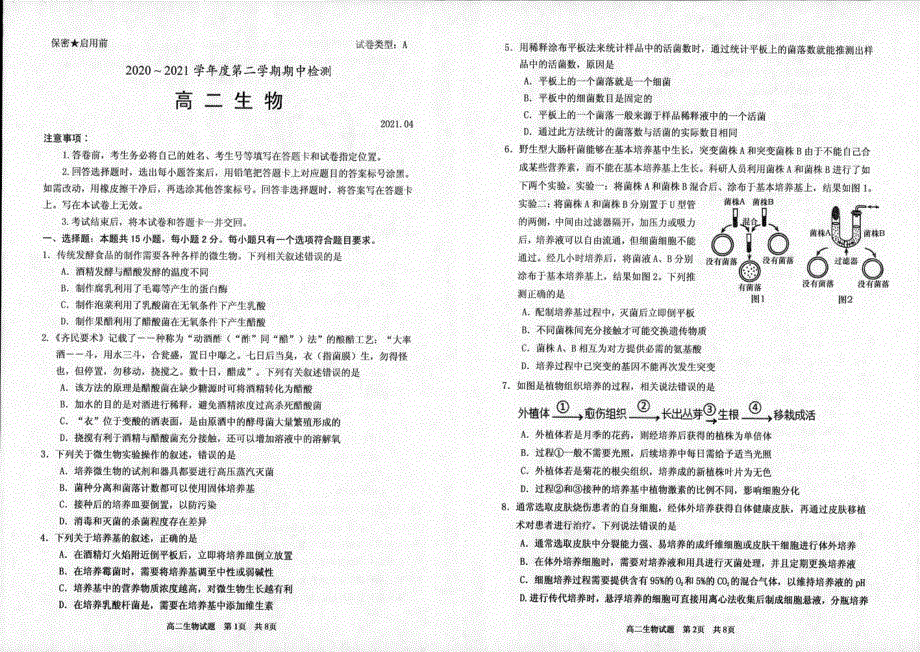 保密★启用前
试卷类型：A
2020～2021学年度第二学期期中检测
高二生物
2021.04
注意事项：
1.答卷前，考生务必将自己的姓名、考生号等填写在答题卡和试卷指定位置。
2.回答选择题时，选出每小题答案后，用铅笔把答题卡上对应题目的答案标号涂黑。
如需改动，用橡皮擦干净后，再选涂其他答案标号。回答非选择题时，将答案写在答题卡
上。写在本试卷上无效。
3.考试结束后，将本试卷和答题卡一并交回。
一、选择题：本题共15小题，每小题2分。每小题只有一个选项符合题目要求。
1. 传统发酵食品的制作需要各种各样的微生物。下列相关叙述错误的是
A. 酒精发酵与醋酸发酵的温度不同
B. 制作腐乳利用了毛霉等产生的蛋白酶
C. 制作泡菜利用了乳酸菌在无氧条件下产生乳酸
D. 制作果醋利用了醋酸菌在无氧条件下产生醋酸
2.《齐民要术》记载了一种称为“动酒酢（“酢”同“醋”）法”的酿醋工艺：“大率
酒一斗，用水三斗，合瓮盛，置日中曝之。七日后当臭，衣（指菌膜）生，勿得怪
也，但停置，勿移动，挠搅之。数十日，醋成”。下列有关叙述错误的是
A. 该方法的原理是醋酸菌在缺少糖源时可将酒精转化为醋酸
B. 加水的目的是对酒进行稀释，避免酒精浓度过高杀死醋酸菌
C. “衣”位于变酸的酒表面，是由原酒中的酵母菌大量繁殖形成的
D. 挠搅有利于酒精与醋酸菌充分接触，还可以增加溶液中的溶解氧
3. 下列关于微生物实验操作的叙述，错误的是
A. 培养微生物的试剂和器具都要进行高压蒸汽灭菌
B. 菌种分离和菌落计数都可以使用固体培养基
C. 接种后的培养皿要倒置，以防污染
D. 消毒和灭菌的杀菌程度存在差异
4. 下列关于培养基的叙述，正确的是
A. 在酒精灯火焰附近倒平板后，立即将培养皿倒立放置
B. 在培养霉菌时，需要将培养基调至中性或弱碱性
C. 培养基中的营养物质浓度越高，对微生物生长越有利
D. 在培养乳酸杆菌时，需要在培养基中添加维生素
高二生物试题 第1页 共8页
5. 用稀释涂布平板法来统计样品中的活菌数时，通过统计平板上的菌落数就能推测出样
品中的活菌数，原因是
A. 平板上的一个菌落就是一个细菌
B. 平板中的细菌数目是固定的
C. 平板上的一个菌落一般来源于样品稀释液中的一个活菌
D. 通过此方法统计的菌落数与活菌的实际数目相同
6. 野生型大肠杆菌能够在基本培养基中生长，突变菌株A和突变菌株B由于不能自己合
成某些营养素，而不能在基本培养基上生长。科研人员利用菌株A和菌株B进行了如
下两个实验。实验一：将菌株A和菌株B混合后、涂布于基本培养基上，结果如图1。
实验二：将菌株A和菌株B分别置于U型管
的两侧，中间由过滤器隔开，加压力或吸力
后，培养液可以自由流通，但细菌细胞不能
通过。经几小时培养后，将菌液A、B分别
涂布于基本培养基上，结果如图2。下列推
测正确的是
菌株A 菌株B
混合
没有菌落 没有菌落
有菌落
图1
菌株A 菌株B
过滤器
没有菌落 没有菌落
图2
A. 配制培养基过程中，灭菌后立即倒平板
B. 不同菌株间充分接触才可能交换遗传物质
C. 菌株A、B相互为对方提供必需的氨基酸
D. 培养过程中已突变的基因不能再次发生突变
7. 如图是植物组织培养的过程，相关说法错误的是
外植体 ① 愈伤组织 ② 长出丛芽 ③ 生根 ④ 移栽成活
A. 外植体若是月季的花药，则经培养后获得的植株为单倍体
B. 过程①一般不需要光照，后续培养中每日需给予适当光照
C. 外植体若是菊花的根尖组织，培养成的新植株叶片为无色
D. 过程②和③接种的培养基中植物激素的比例不同，影响细胞分化
8. 通常选取皮肤烧伤患者的自身细胞，经体外培养获得自体健康皮肤，再通过皮肤移植
术对患者进行治疗。下列说法错误的是
A. 通常选取皮肤中分裂能力强、易培养的成纤维细胞或皮肤干细胞进行体外培养
B. 在体外培养细胞时，需要对培养液和用具进行灭菌处理，并且定期更换培养液
C. 细胞培养过程需要提供含有95%的O₂和5%的CO₂的混合气体，以维持培养液的pH
D. 进行传代培养时，悬浮培养的细胞可直接用离心法收集后制成细胞悬液，分瓶培养
高二生物试题 第2页 共8页